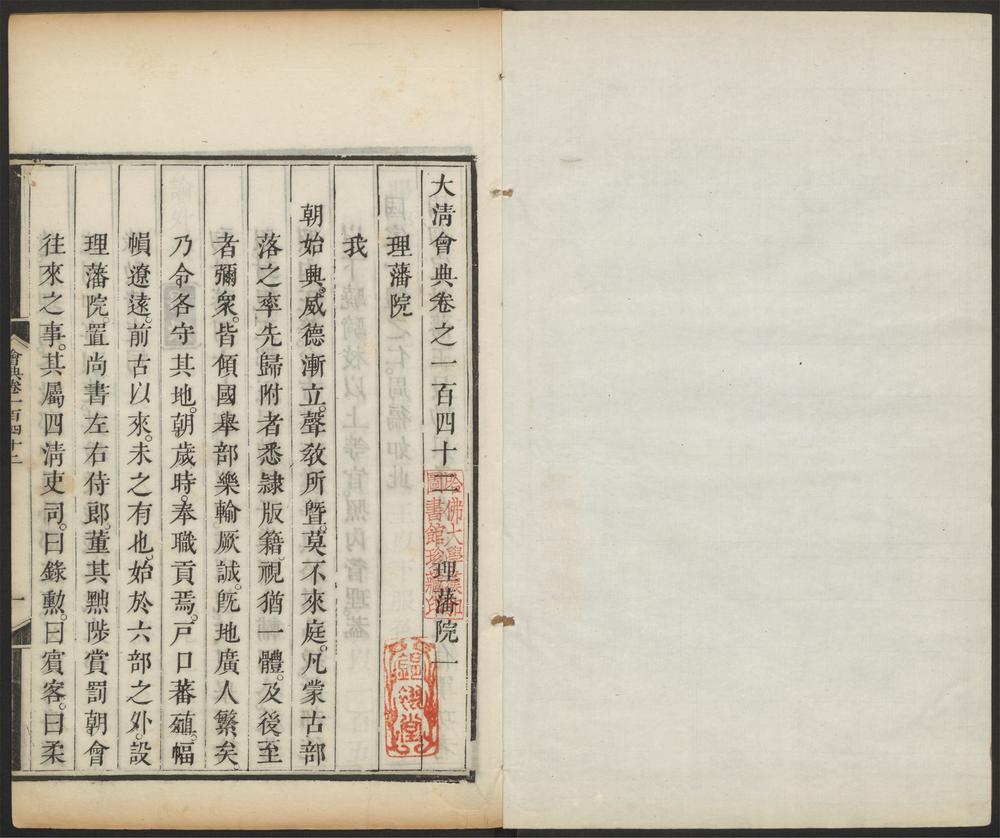 大淸會典卷之一百四十二 理藩院一
理藩院
我
朝始興。威德漸立。聲敎所曁。莫不來庭。凡蒙古部
落之率先歸附者。悉隷版籍。視猶一體。及後至
者彌衆。皆傾國舉部。樂輸厥誠。旣地廣人繁矣
乃令各守其地。朝歲時。奉職貢焉。戸口蕃殖。幅
幀遼遠。前古以來。未之有也。始於六部之外。設
理藩院。置尚書左右侍郎。董其黜陟賞罰朝會
往來之事。其屬四淸吏司。曰錄勳。曰賓客。曰柔
會典卷一百四十二
一
哈佛大學漢和
圖書館珍藏印